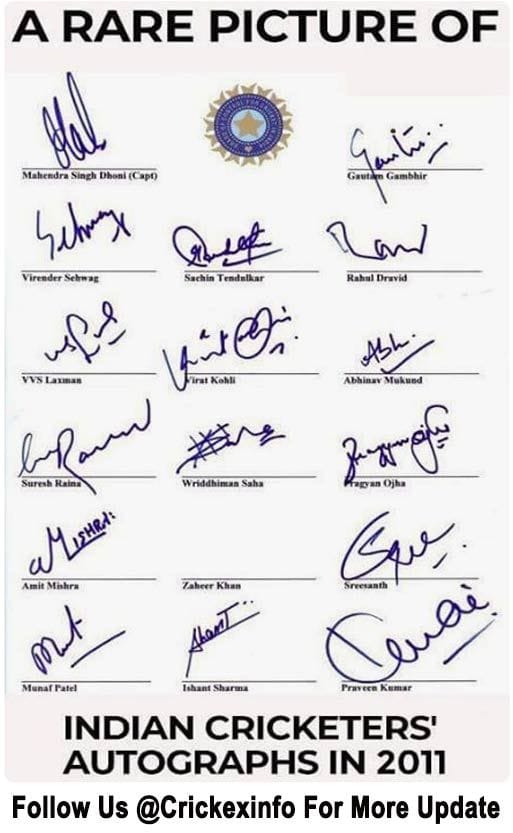 A RARE PICTURE OF
Mahendra Singh Dhoni (Capt)
Gautam Gambhir
Virender Sehwag
Sachin Tendulkar
Rahul Dravid
VVS Laxman
Virat Kohli
Abhinav Mukund
Suresh Raina
Wriddhiman Saha
Pragyan Ojha
Amit Mishra
Zaheer Khan
Sreesanth
Munaf Patel
Ishant Sharma
Praveen Kumar
INDIAN CRICKETERS'
AUTOGRAPHS IN 2011
Follow Us @Crickexinfo For More Update